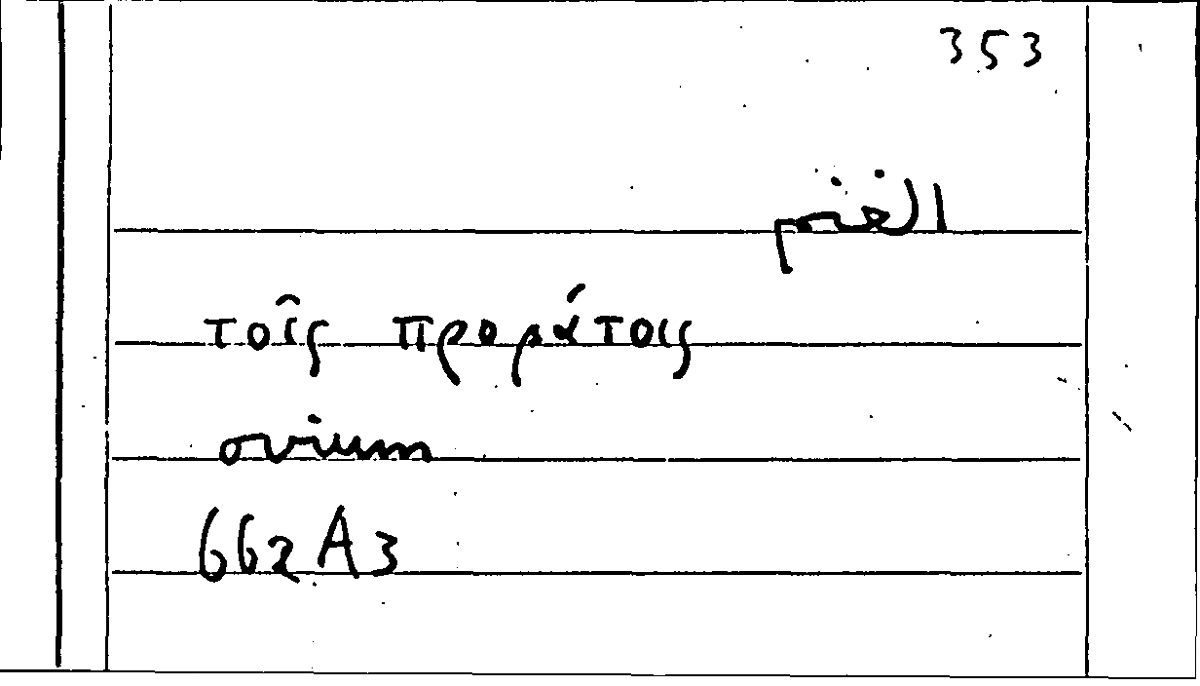 353
الغنم
τοῖς προβάτοις
ovium
662A3